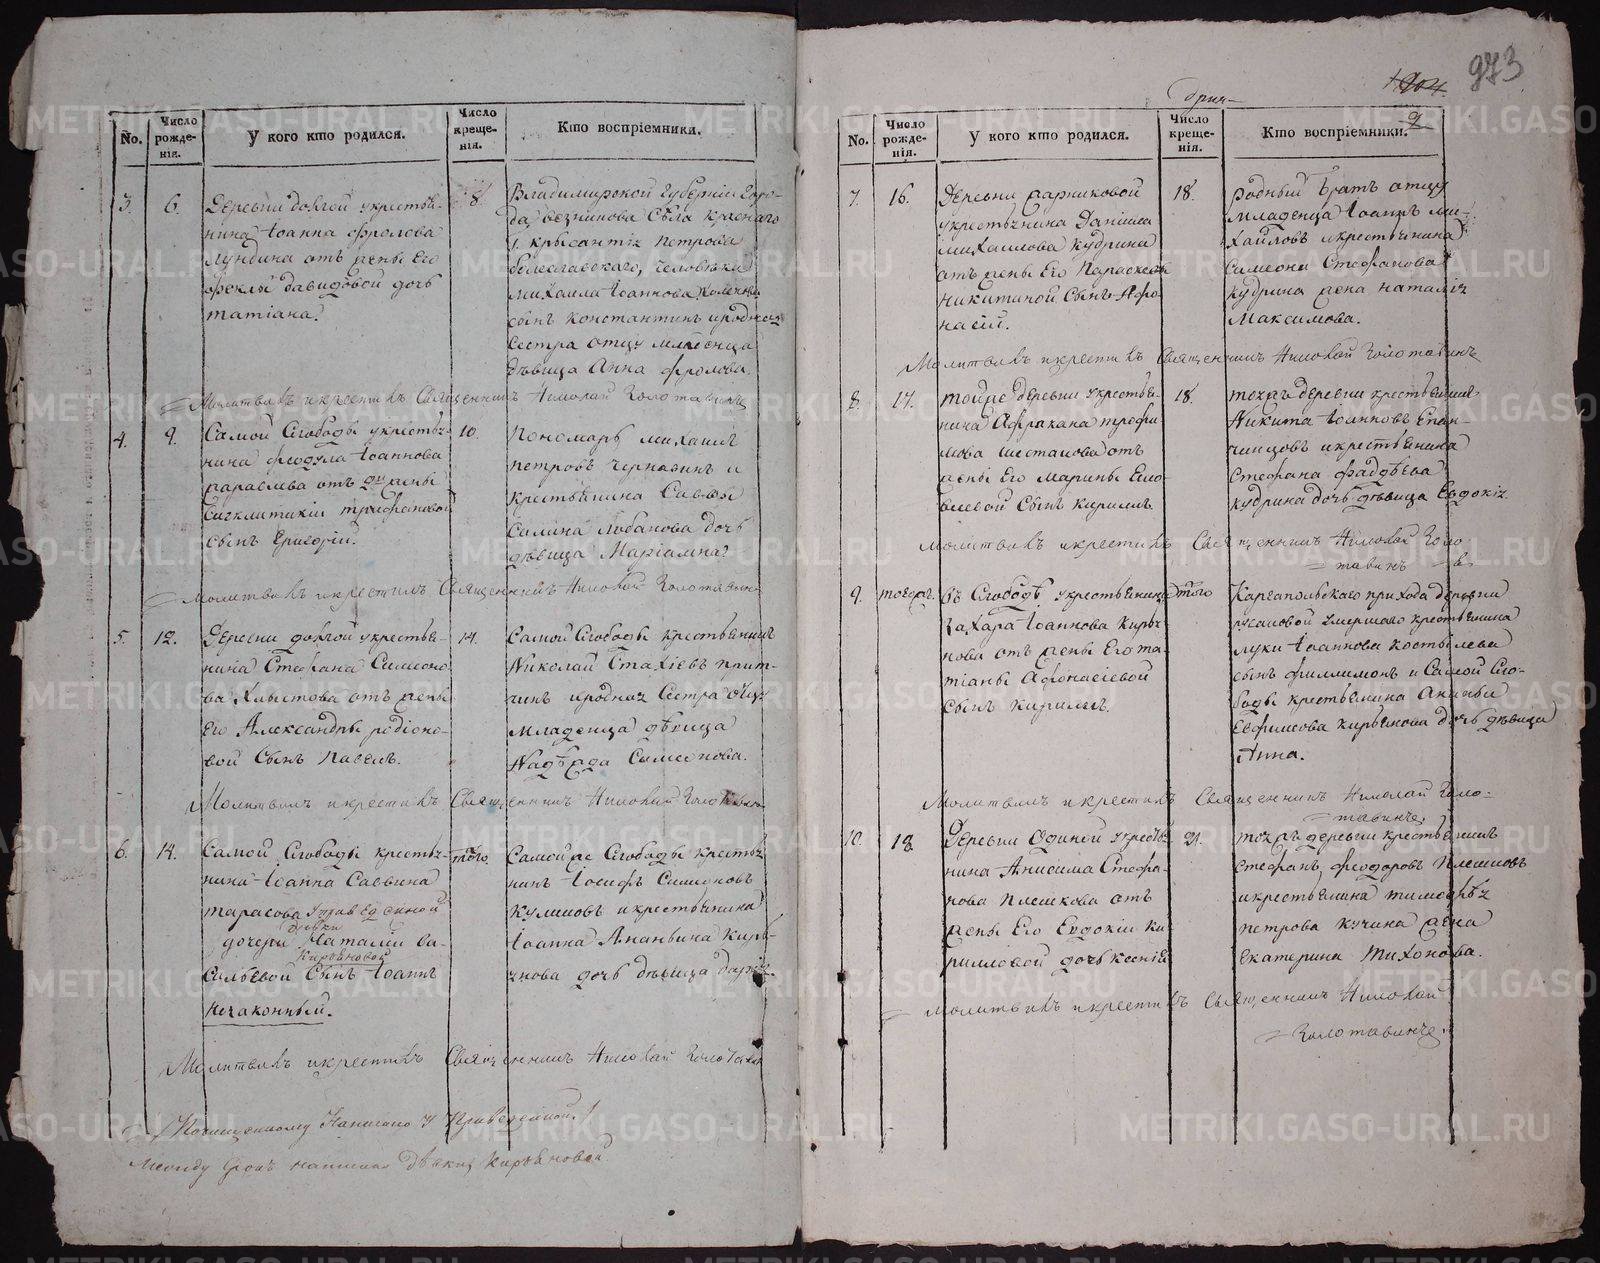 No.
Число рожде-нія.
У кого кто родился.
Число креще-нія.
Кто воспріемники.
3.
6.
Деревни Долгой укрестья-
нина Іоанна Фролова
Лундина отъ жены Его
Феклы Давидовой дочь
Татіана.
8.
Владимирской Губерніи Горо-
да Везникова Села Краснаго
Петрова
человека
Михаила Іоаннова
сынъ Константинъ и родная
Сестра отцу младенца
дѣвица Анна Фролова.
Молитвилъ и крестилъ Священникъ Николай Золотавинъ
4.
9.
Самой Слободы укрестья-
нина Феодула Іоаннова
отъ жены
Сигклитикіи Трифановой
сынъ Григорій.
10.
Пономарь Михаилъ
Петровъ Чернавинъ и
крестьянина Саввы
Лобанова дочь
дѣвица Маріамна.
Молитвилъ и крестилъ Священникъ Николай Золотавинъ
5.
12.
Деревни Долгой укрестья-
нина Стефана Симеоно-
ва Хлыстова отъ жены
Его Александры Радіоно-
вой Сынъ Павелъ.
14.
Самой Слободы крестьянинъ
Николай Стахіевъ Прит-
чинъ и родная Сестра отцу
младенца дѣвица
Надѣжда Симеонова.
Молитвилъ и крестилъ Священникъ Николай Золотавинъ
6.
14.
Самой Слободы крестья-
нина Іоанна Саввина
Тарасова у приведенной
девки
дочери Наталіи Ва-
Кирьяновой
сильевой Сынъ Іоаннъ
незаконный.
того.
Самой же Слободы крестья-
нинъ Іосифъ Симеоновъ
Куликовъ и крестьянина
Іоанна Ананьина Кирья-
нова дочь дѣвица Дарія.
Молитвилъ и крестилъ Священникъ Николай Золотавинъ
Почищенному Написано у Приведенной.
Между строкъ написано девки Кирьяновой
973
No.
Число рожде-нія.
У кого кто родился.
Число креще-нія.
Кто воспріемники.
7.
16.
Деревни Парниковой
укрестьянина Даніила
Михаилова Кудрина
отъ жены Его Параскевы
Никитиной Сынъ Афо-
насій.
18.
Родный братъ отцу
младенца Іоаннъ Ми-
хайловъ и крестьянина
Симеона Стефанова
Кудрина жена Наталія
Максимова.
Молитвилъ и крестилъ Священникъ Николай Золотавинъ
8.
17.
Тойже деревни укрестья-
нина Афрахана Трофи-
мова Шестакова отъ
жены Его Марины
Сынъ Кириллъ.
18.
Тояжъ деревни крестьянинъ
Никита Іоанновъ Епан-
чинцовъ и крестьянина
Стефана Фаддѣева
Кудрина дочь дѣвица Евдокія.
Молитвилъ и крестилъ Священникъ Николай Золо-
тавинъ
9.
тогож.
въ Слободѣ укрестьянина
Захара Іоаннова Кирья-
нова отъ жены Его Та-
тіаны Афонасіевой
сынъ Кириллъ.
того
Каргапольскаго прихода деревни
Русановой умершаго крестьянина
Луки Іоаннова Костылева
сынъ Филлимонъ и Самой Сло-
боды крестьянина Ананьи
Евфимова Кирьянова дочь дѣвица
Анна.
Молитвилъ и крестилъ Священникъ Николай Золо-
тавинъ.
10.
18
Деревни Одиной укрестья-
нина Анисима Стефа-
нова Плешкова отъ
жены Его Евдокіи Ки-
рилловой дочь Ксенія
21.
Тояжъ деревни крестьянинъ
Стефанъ Феодоровъ Плешковъ
и крестьянина Тимофѣя
Петрова Кучина жена
Екатерина Тихонова.
Молитвилъ и крестилъ Священникъ Николай
Золотавинъ.
METRIKI.GASO-URAL.RU